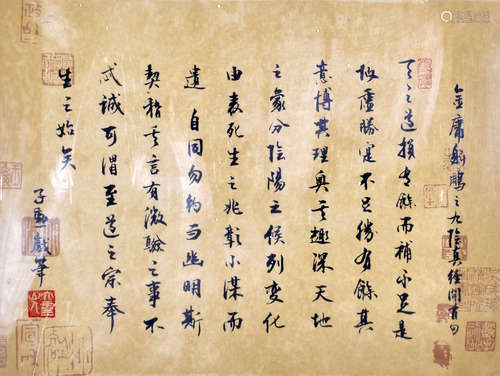 金庸射鵰之九陰真經開首曰
天之道損有餘而補不足是
故虛勝實不足勝有餘其
意博其理奧其趣深天地
之象分陰陽之候列變化
由表死生之兆彰不謀而
遺 自同勿約而幽明斯
契稽其言有微驗之事不
忒誠可謂至道之宗奉
生之始矣
戲筆